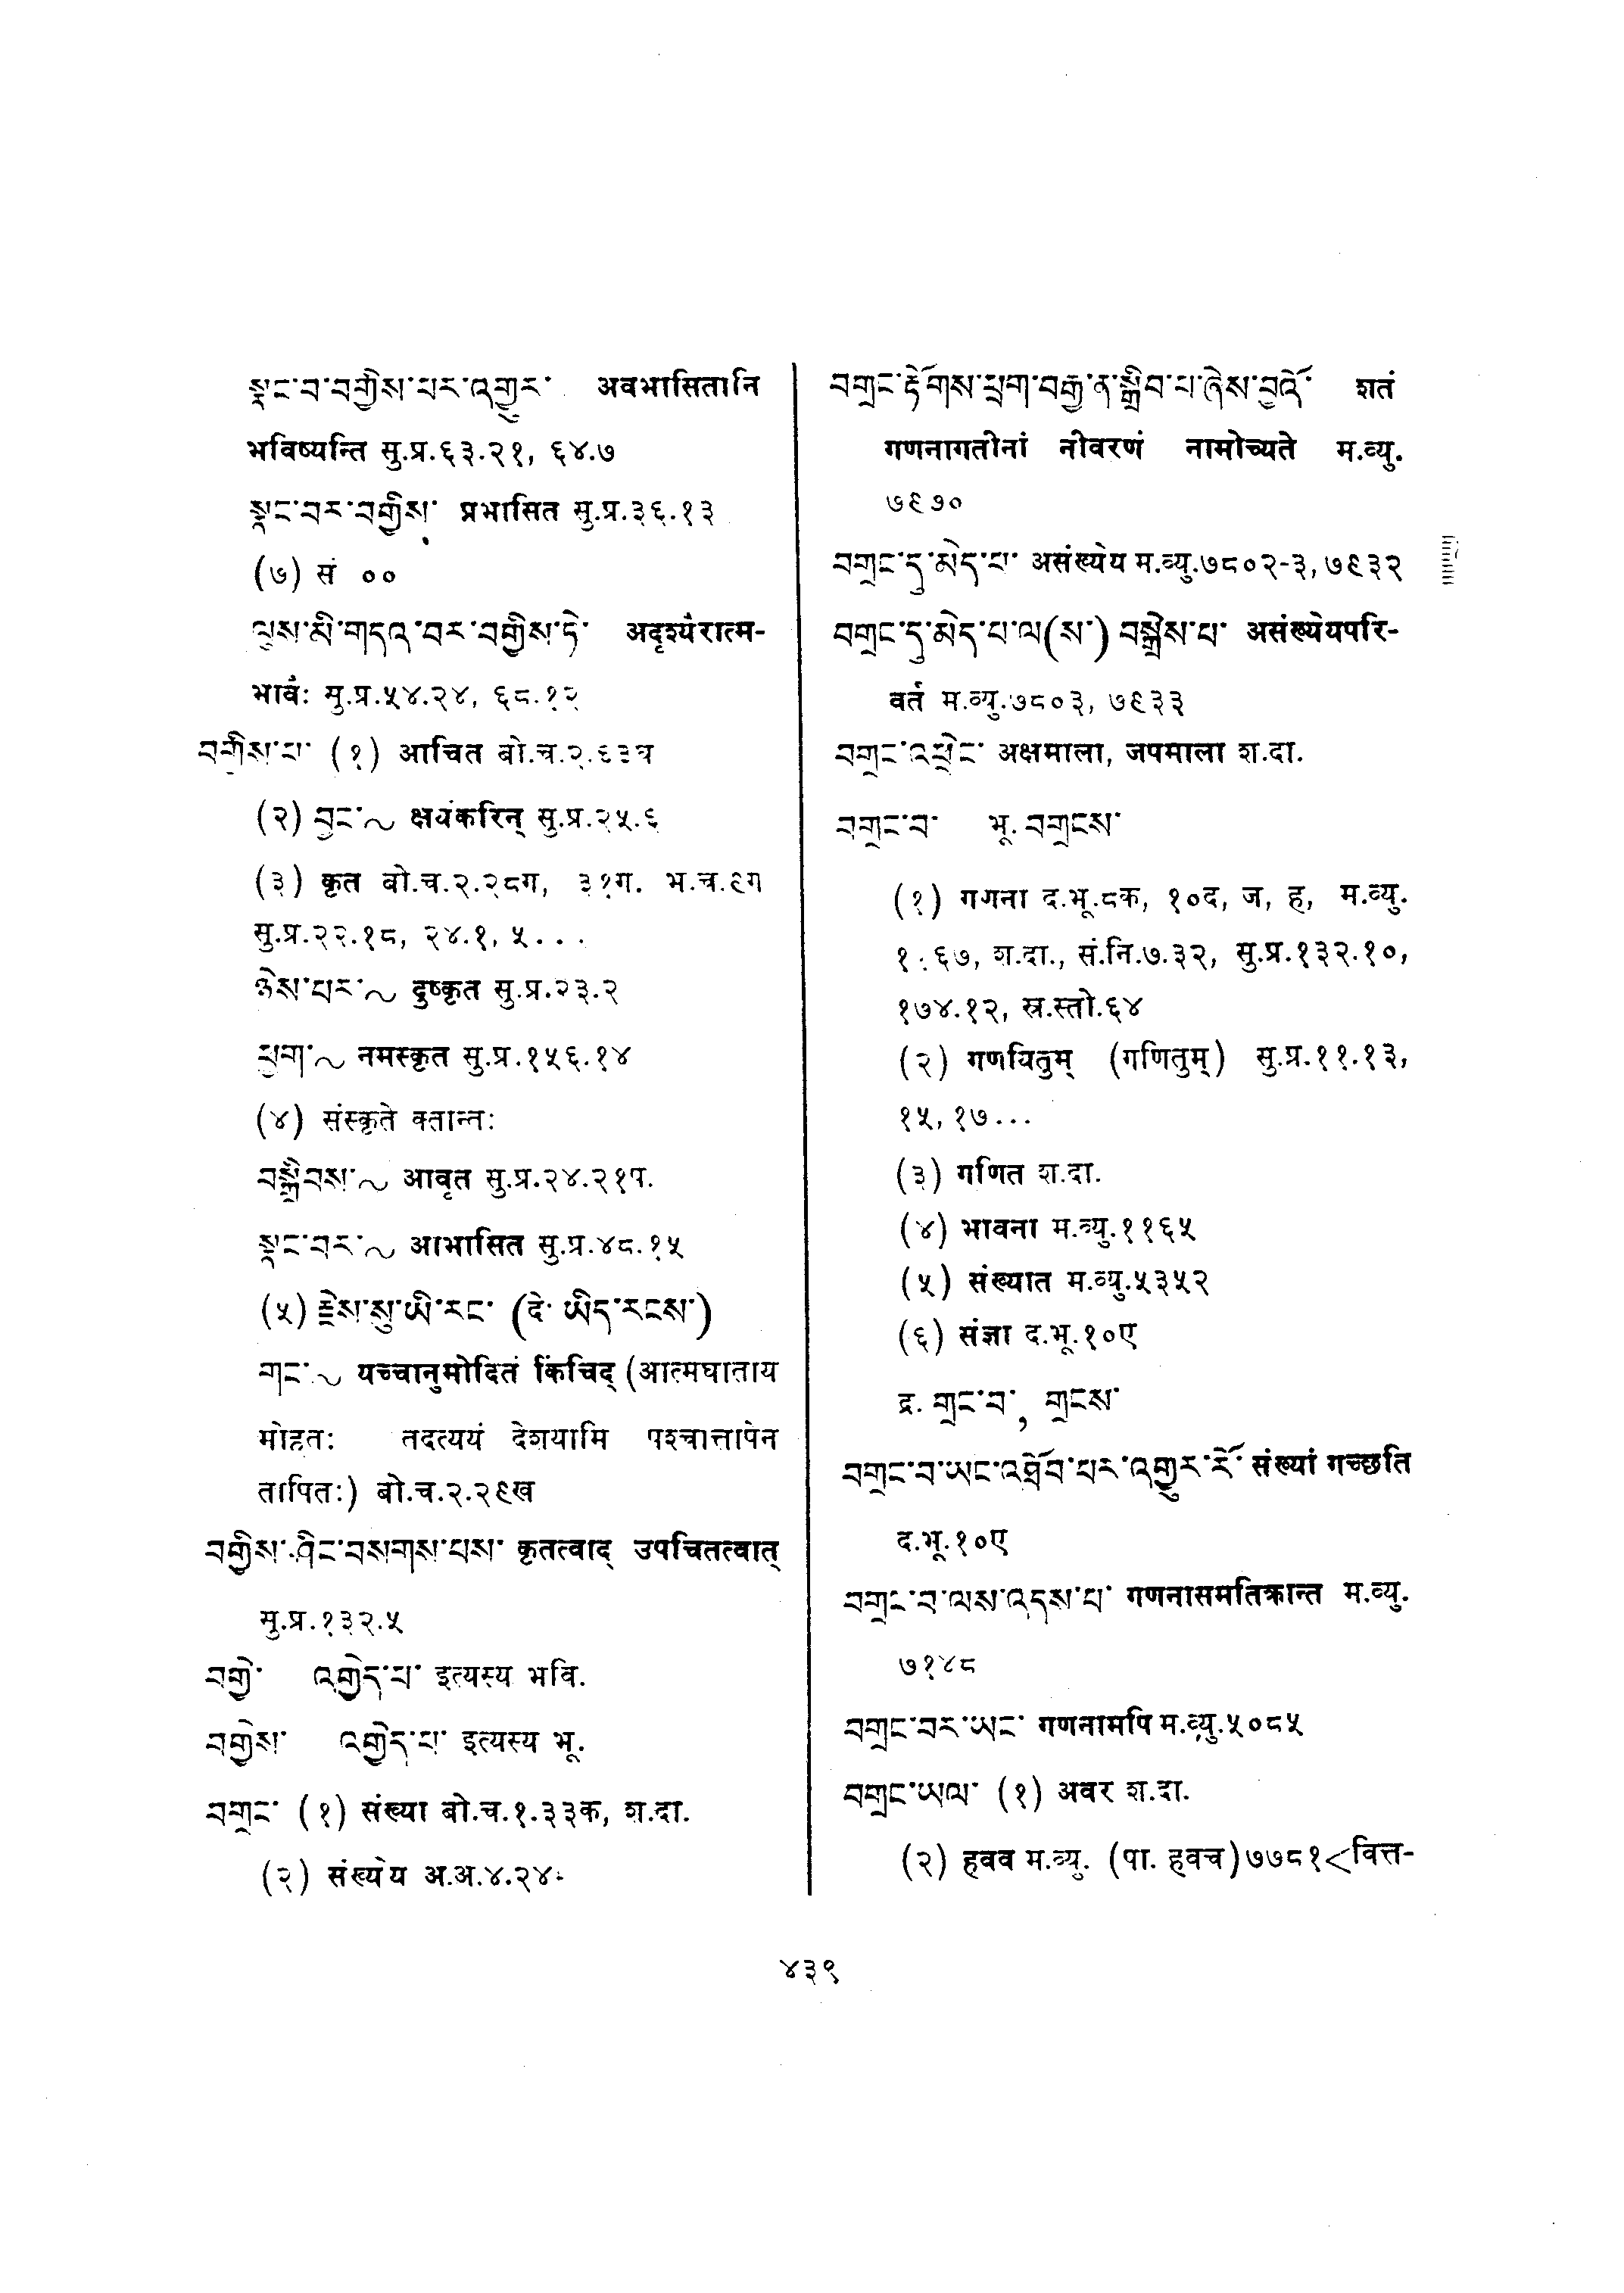 སྣང་བ་བགྱིས་པར་འགྱུར་ अवभासितानि
भविष्यन्ति सु.प्र.६३.२१, ६४.७
སྣང་བར་བགྱིས་ प्रभासित सु.प्र.३६.१३
(७) सं ००
ལུས་མི་གདའ་བར་བགྱིས་ཏེ་ अदृश्यैरात्म-
भावैः सु.प्र.५४.२४, ६८.१२
བགྱིས་པ་ (१) आचित बो.च.२.६३घ
(२) བྱང་~ क्षयंकरिन् सु.प्र.२५.६
(३) कृत बो.च.२.२८ग, ३१ग. भ.च.९ग
सु.प्र.२२.१८, २४.१, ५...
ཉེས་པར་~ दुष्कृत सु.प्र.२३.२
ཕྱག་~ नमस्कृत सु.प्र.१५६.१४
(४) संस्कृते क्तान्तः
བསྒྲིབས་~ आवृत सु.प्र.२४.२१प.
སྣང་བར་~ आभासित सु.प्र.४८.१५
(५) རྗེས་སུ་ཡི་རང་ (དེ་ ཡིད་རངས་)
གང་~ यच्चानुमोदितं किंचिद् (आत्मघाताय
मोहतः तदत्ययं देशयामि पश्चात्तापेन
तापितः) बो.च.२.२९ख
བགྱིས་ཤིང་བསགས་པས་ कृतत्वाद् उपचितत्वात्
सु.प्र.१३२.५
བགྱེ་ འགྱེད་པ་ इत्यस्य भवि.
བགྱེས་ འགྱེད་པ་ इत्यस्य भू.
བགྲང་ (१) संख्या बो.च.१.३३क, श.दा.
(२) संख्येय अ.अ.४.२४
བགྲང་རྟོགས་ཕྲག་བརྒྱ་ན་སྒྲིབ་པ་ཞེས་བྱའོ་ शतं
गणनागतीनां नीवरणं नामोच्यते म.व्यु.
७९७०
བགྲང་དུ་མེད་པ་ असंख्येय म.व्यु.७८०२-३, ७९३२
བགྲང་དུ་མེད་པ་ལ(ས་) བསྒྲེས་པ་ असंख्येयपरि-
वर्त म.व्यु.७८०३, ७९३३
བགྲང་འཕྲེང་ अक्षमाला, जपमाला श.दा.
བགྲང་བ་ भू. བགྲངས་
(१) गणना द.भू.८क, १०द, ज, ह, म.व्यु.
६७, श.दा., सं.नि.७.३२, सु.प्र.१३२.१०,
१७४.१२, स्र.स्तो.६४
(२) गणयितुम् (गणितुम्) सु.प्र.११.१३,
१५, १७...
(३) गणित श.दा.
(४) भावना म.व्यु.११६५
(५) संख्यात म.व्यु.५३५२
(६) संज्ञा द.भू.१०ए
द्र. གྲང་བ་, གྲངས་
བགྲང་བ་ཡང་འཐོབ་པར་འགྱུར་རོ་ संख्यां गच्छति
द.भू.१०ए
བགྲང་བ་ལས་འདས་པ་ गणनासमतिक्रान्त म.व्यु.
७१४८
བགྲང་བར་ཡང་ गणनामपि म.व्यु.५०८५
བགྲང་ཡལ་ (१) अवर श.दा.
(२) हवव म.व्यु. (पा. हवच)७७८१<वित्त-
४३९